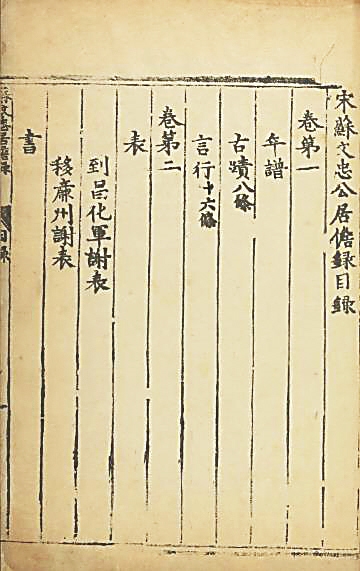 宋蘇文忠公居儋録目録
卷第一
年譜
古蹟八條
言行十六條
卷第二
表
到昌化軍謝表
移廉州謝表
書
目録